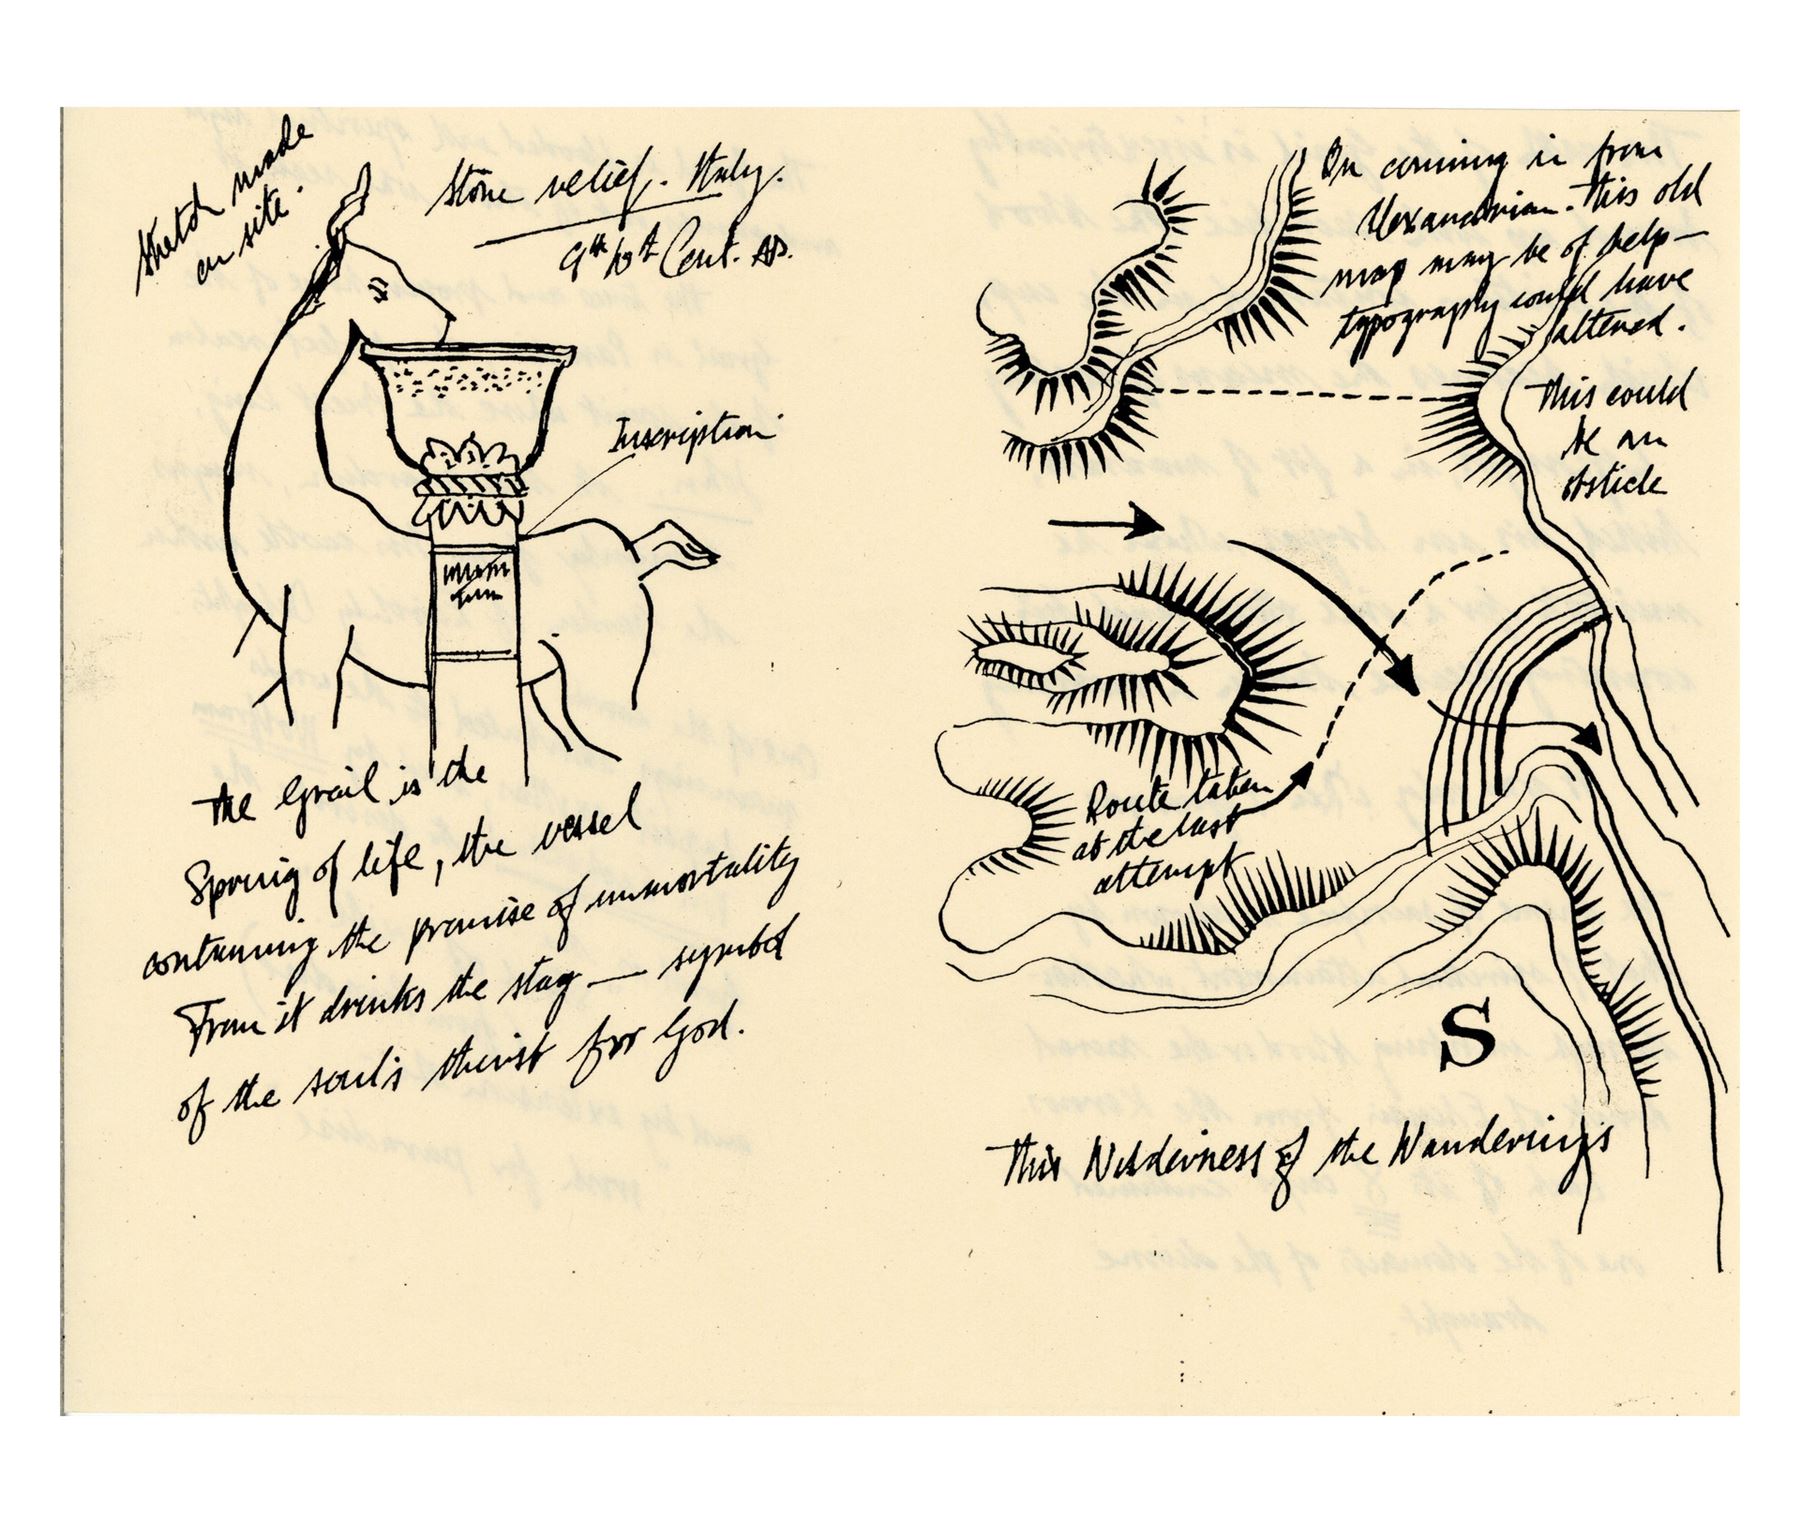 Sketch made
on site.
Stone relief. Italy.
9th 10th Cent. AD.
Inscription
the Grail is the
Spring of life, the vessel
containing the promise of immortality
From it drinks the stag — symbol
of the soul's thirst for God.
On coming in from
Alexandrian. This old
map may be of help —
typography could have
altered.
This could
be an
obsticle
Route taken
at the last
attempt
S
This Wilderness of the Wanderings